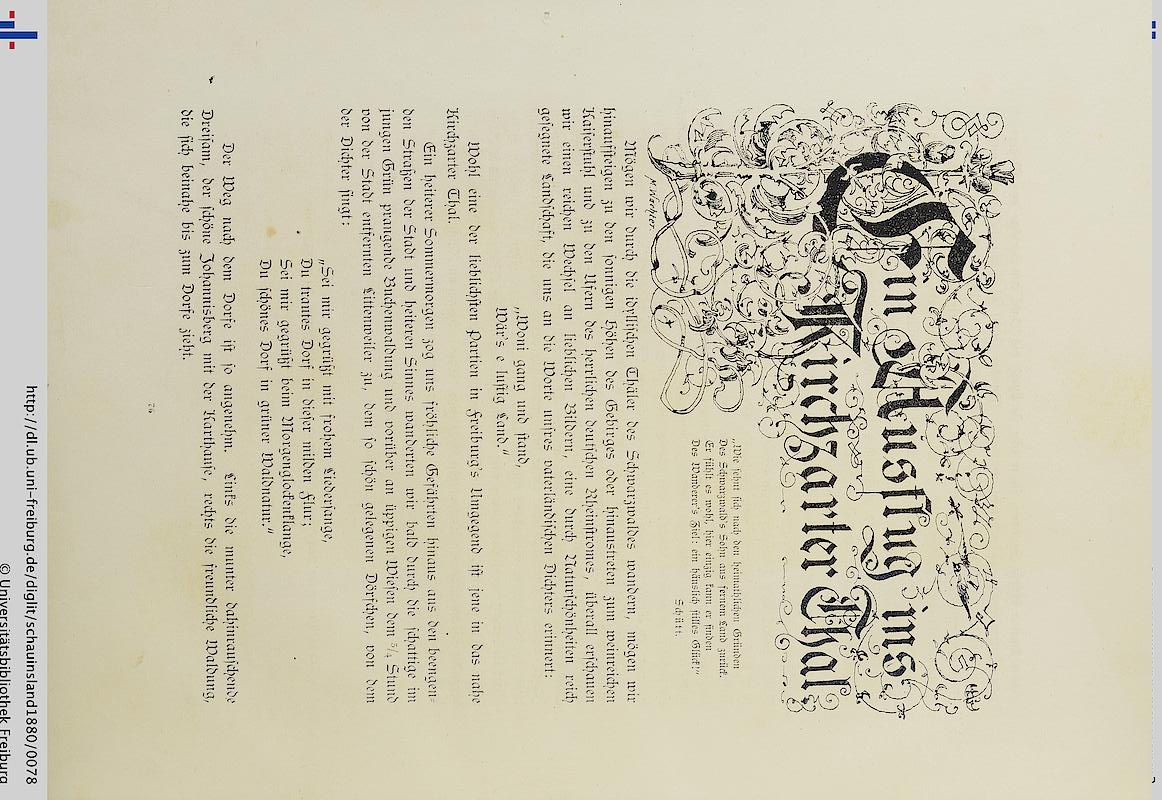 Ein Ausflug ins
Kirchzarter Thal
„Wie sehnt sich nach den heimathlichen Gründen
Des Schwarzwald's Sohn aus fernem Land zurück.
Er fühlt es wohl, hier einzig kann er finden
Des Wanderer's Ziel: ein häuslich stilles Glück!“
Schütt.
K. Waechter.
Mögen wir durch die idyllischen Thäler des Schwarzwaldes wandern, mögen wir
hinaufsteigen zu den sonnigen Höhen des Gebirges oder hinaustreten zum weinreichen
Kaiserstuhl und zu den Ufern des herrlichen deutschen Rheinstromes, überall erschauen
wir einen reichen Wechsel an lieblichen Bildern, eine durch Naturschönheiten reich
gesegnete Landschaft, die uns an die Worte unsres vaterländischen Dichters erinnert:
„Woni gang und stand,
Wär's e lustig Land.“
Wohl eine der lieblichsten Partien in Freiburg's Umgegend ist jene in das nahe
Kirchzarter Thal.
Ein heiterer Sommermorgen zog uns fröhliche Gefährten hinaus aus den beengen-
den Straßen der Stadt und heiteren Sinnes wanderten wir bald durch die schattige im
jungen Grün prangende Buchenwaldung und vorüber an üppigen Wiesen dem 5/4 Stund
von der Stadt entfernten Littenweiler zu, dem so schön gelegenen Dörfchen, von dem
der Dichter singt:
„Sei mir gegrüßt mit frohem Liedersange,
Du trautes Dorf in dieser milden Flur;
Sei mir gegrüßt beim Morgenglockenklange,
Du schönes Dorf in grüner Waldnatur.“
Der Weg nach dem Dorfe ist so angenehm. Links die munter dahinrauschende
Dreisam, der schöne Johannisberg mit der Karthause, rechts die freundliche Waldung,
die sich beinahe bis zum Dorfe zieht.
http://dl.ub.uni-freiburg.de/diglit/schauinsland1880/0078
© Universitätsbibliothek Freiburg